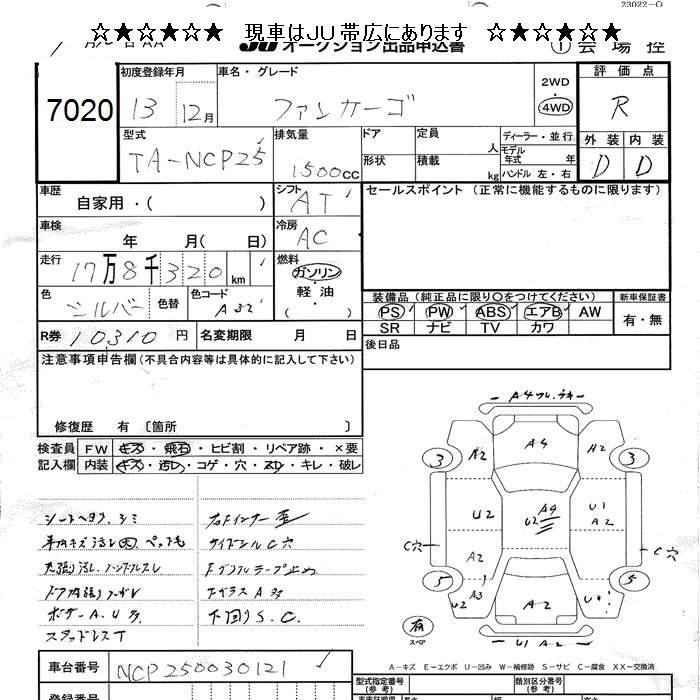 23022-O
☆★☆★☆★ 現車はJU帯広にあります ☆★☆★☆★
JU オークション出品申込書 ① 会場控
7020
初度登録年月 車名・グレード 2WD 評価点
13 12月 ファンカーゴ 4WD R
型式 排気量 ドア 定員 ディーラー・並行 外装 内装
TA-NCP25 1500cc 人 モデル年式 年 D D
形状 積載 kg ハンドル 左・右
車歴 シフト セールスポイント (正常に機能するものに限ります)
自家用・( ) AT
車検 冷房
年 月( 日) AC
走行 燃料
17万8千320km ガソリン
軽油
( )
色 色替 色コード 装備品 (純正品に限り○をつけてください) 新車保証書
シルバー A32 PS PW ABS エアB AW 有・無
SR ナビ TV カワ
R券 10310円 名変期限 月 日 後日品
注意事項申告欄 (不具合内容等は具体的に記入して下さい)
修復歴 有 〔箇所 〕
検査員 FW キズ・飛石・ヒビ割・リペア跡・×要
記入欄 内装 キズ・汚レ・コゲ・穴・スレ・キレ・破レ
シートヘタリ、シミ 右ドインナー歪
車内キズ汚レ ペット毛 サイドシルC穴
天張り汚レ、ハンドルスレ
ドア内張り Fガラスア多
ボデーA.U多 下回りS.C.
スタッドレスT
A4
A2 A4 A2
3 3
U2 A4 U2 U1 A2
C穴 C穴
A2
5 5
U2 A3 A2
有 スペア U1 A2
A-キズ E-エクボ U-凹み W-補修跡 S-サビ C-腐食 XX-交換済
車台番号 NCP250030121
型式指定番号 (参考) 類別区分番号 (参考)
登録番号